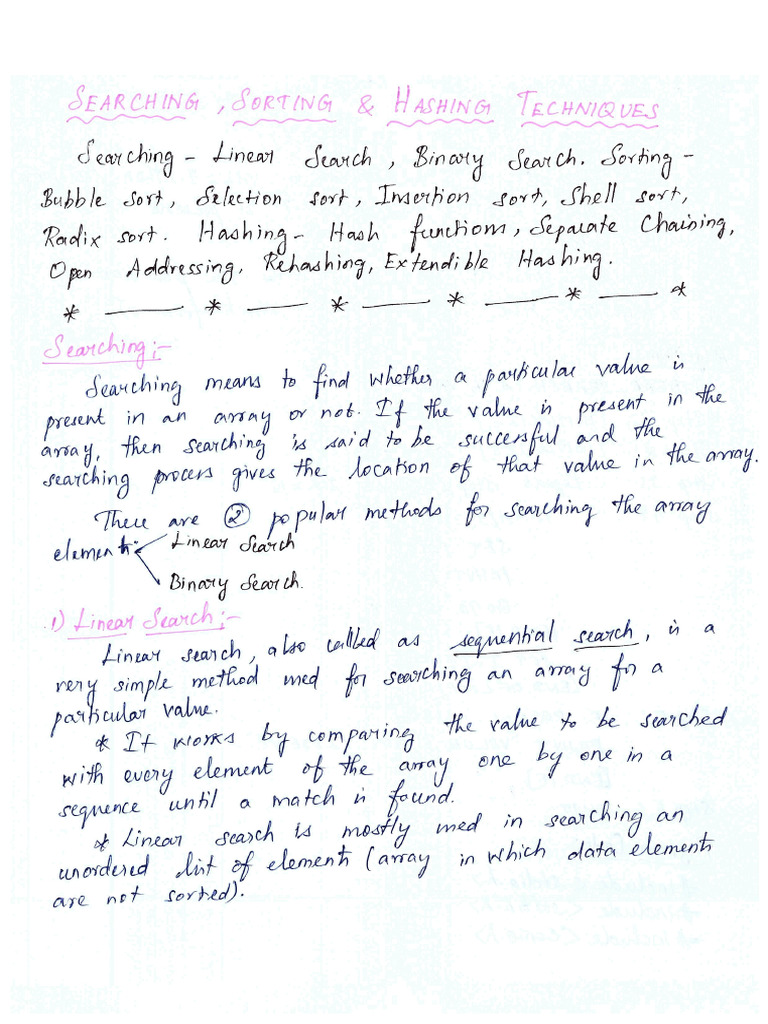 SEARCHING, SORTING & HASHING TECHNIQUES
Searching - Linear Search, Binary Search. Sorting -
Bubble sort, Selection sort, Insertion sort, Shell sort,
Radix sort. Hashing - Hash functions, Separate Chaining,
Open Addressing, Rehashing, Extendible Hashing.
* —— * —— * —— * —— * —— *
Searching:-
Searching means to find whether a particular value is
present in an array or not. If the value is present in the
array, then searching is said to be successful and the
searching process gives the location of that value in the array.
There are 2 popular methods for searching the array
elements
Linear Search
Binary Search.
1) Linear Search:-
Linear search, also called as sequential search, is a
very simple method used for searching an array for a
particular value.
* It works by comparing the value to be searched
with every element of the array one by one in a
sequence until a match is found.
* Linear search is mostly used in searching an
unordered list of elements (array in which data elements
are not sorted).